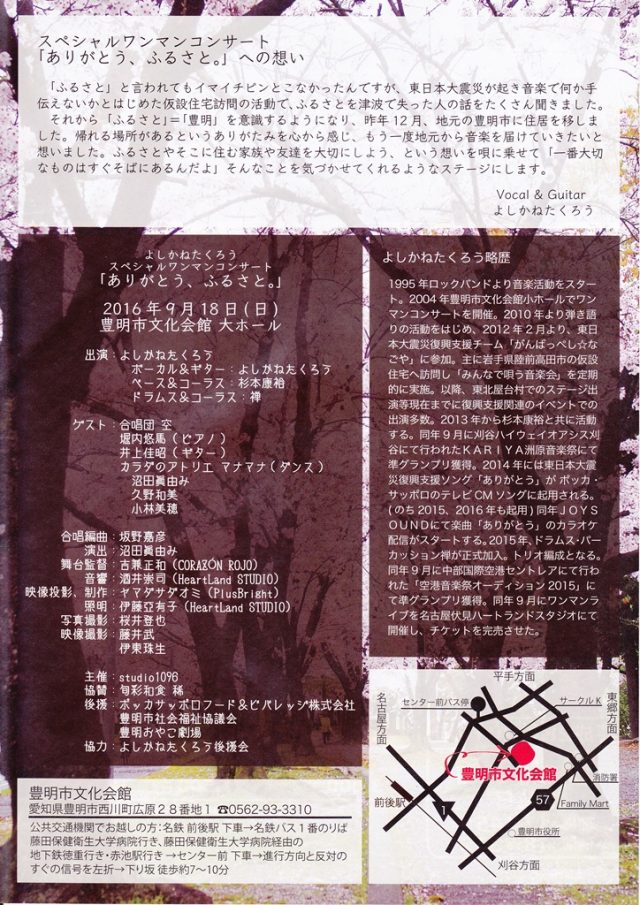 スペシャルワンマンコンサート
「ありがとう、ふるさと。」への想い
「ふるさと」と言われてもイマイチピンとこなかったんですが、東日本大震災が起き音楽で何か手
伝えないかとはじめた仮設住宅訪問の活動で、ふるさとを津波で失った人の話をたくさん聞きました。
それから「ふるさと」＝「豊明」を意識するようになり、昨年12月、地元の豊明市に住居を移しま
した。帰れる場所があるというありがたみを心から感じ、もう一度地元から音楽を届けていきたいと
想いました。ふるさとやそこに住む家族や友達を大切にしよう、という想いを唄に乗せて「一番大切
なものはすぐそばにあるんだよ」そんなことを気づかせてくれるようなステージにします。
Vocal & Guitar
よしかねたくろう
よしかねたくろう
スペシャルワンマンコンサート
「ありがとう、ふるさと。」
2016年9月18日(日)
豊明市文化会館 大ホール
出演：よしかねたくろう
ボーカル&ギター：よしかねたくろう
ベース&コーラス：杉本康裕
ドラムス&コーラス：禅
ゲスト：合唱団 空
堀内悠馬(ピアノ)
井上佳昭(ギター)
カラダのアトリエ マナマナ(ダンス)
沼田眞由み
久野和美
小林美穂
合唱編曲：坂野嘉彦
演出：沼田眞由み
舞台監督：吉兼正和(CORAZÓN ROJO)
音響：酒井崇司(HeartLand STUDIO)
映像投影、制作：ヤマダサダオミ(PlusBright)
照明：伊藤亜有子(HeartLand STUDIO)
写真撮影：桜井登也
映像撮影：藤井武
伊東珠生
主催：studio1096
協賛：旬彩和食 稀
後援：ポッカサッポロフード&ビバレッジ株式会社
豊明市社会福祉協議会
豊明おやこ劇場
協力：よしかねたくろう後援会
よしかねたくろう略歴
1995年ロックバンドより音楽活動をスター
ト。2004年豊明市文化会館小ホールでワン
マンコンサートを開催。2010年より弾き語
りの活動をはじめ、2012年2月より、東日
本大震災復興支援チーム「がんばっぺし☆な
ごや」に参加。主に岩手県陸前高田市の仮設
住宅へ訪問し「みんなで唄う音楽会」を定期
的に実施。以降、東北屋台村でのステージ出
演等現在までに復興支援関連のイベントでの
出演多数。2013年から杉本康裕と共に活動
する。同年9月に刈谷ハイウェイオアシス刈
谷にて行われたKARIYA洲原音楽祭にて
準グランプリ獲得。2014年には東日本大震
災復興支援ソング「ありがとう」が ポッカ・
サッポロのテレビCMソングに起用される。
(のち2015、2016年も起用)同年JOYS
OUNDにて楽曲「ありがとう」のカラオケ
配信がスタートする。2015年、ドラムス・パー
カッション禅が正式加入。トリオ編成となる。
同年9月に中部国際空港セントレアにて行わ
れた「空港音楽祭オーディション2015」に
て準グランプリ獲得。同年9月にワンマンラ
イブを名古屋伏見ハートランドスタジオにて
開催し、チケットを完売させた。
平手方面
名古屋方面
センター前バス停
サークルK
東郷方面
豊明市文化会館
消防署
前後駅
1
57
Family Mart
豊明市役所
刈谷方面
豊明市文化会館
愛知県豊明市西川町広原28番地1 ☎0562-93-3310
公共交通機関でお越しの方：名鉄 前後駅 下車→名鉄バス1番のりば
藤田保健衛生大学病院行き、藤田保健衛生大学病院経由の
地下鉄徳重行き・赤池駅行き →センター前 下車→進行方向と反対の
すぐの信号を左折→下り坂 徒歩約7〜10分